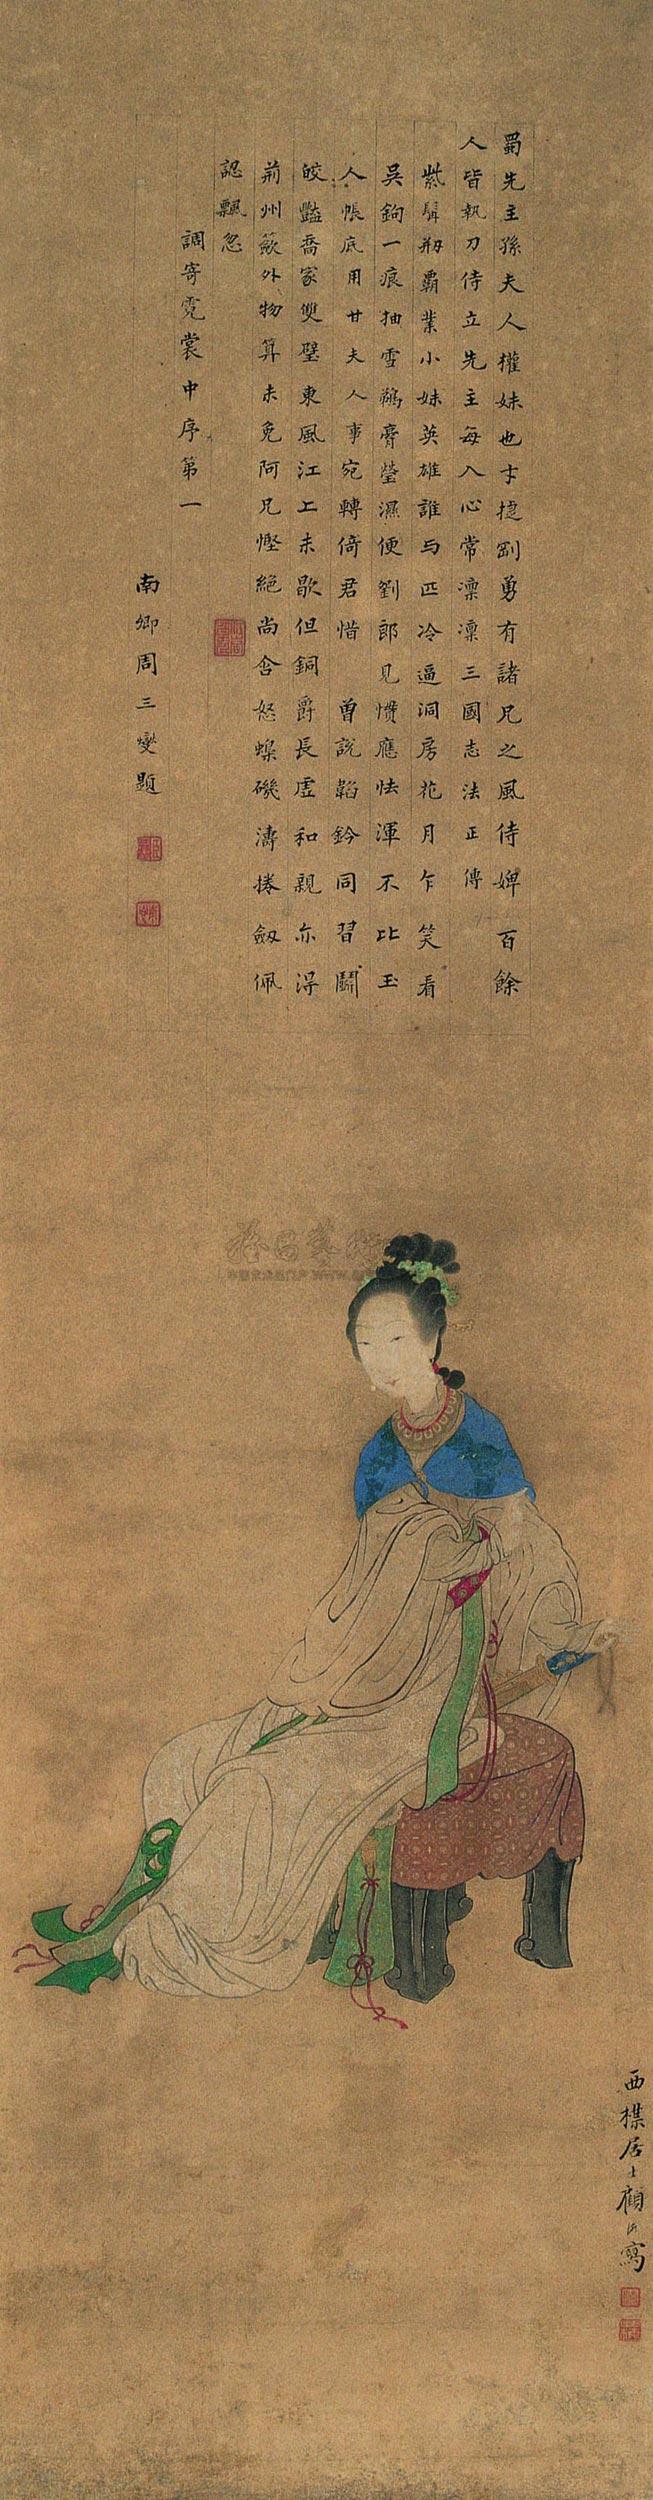 蜀先主孫夫人權妹也才捷剛勇有諸兄之風侍婢百餘
人皆執刀侍立先主每入心常凜凜三國志法正傳
紫髯剏霸業小妹英雄誰与匹冷逼洞房花月乍笑看
吳鉤一痕抽雪鵜膏瑩濕便劉郎見慣應怯渾不比玉
人帳底用甘夫人事宛轉倚君惜 曾說韜鈐同習鬬
皎豔喬家雙璧東風江上未歇但銅爵長虛和親亦得
荊州蔌外物算未免阿兄慳絕尚含怒蟂磯濤捲劔佩
認飄忽
調寄霓裳中序第一
南卿周三燮題
西楳居士顧洛寫